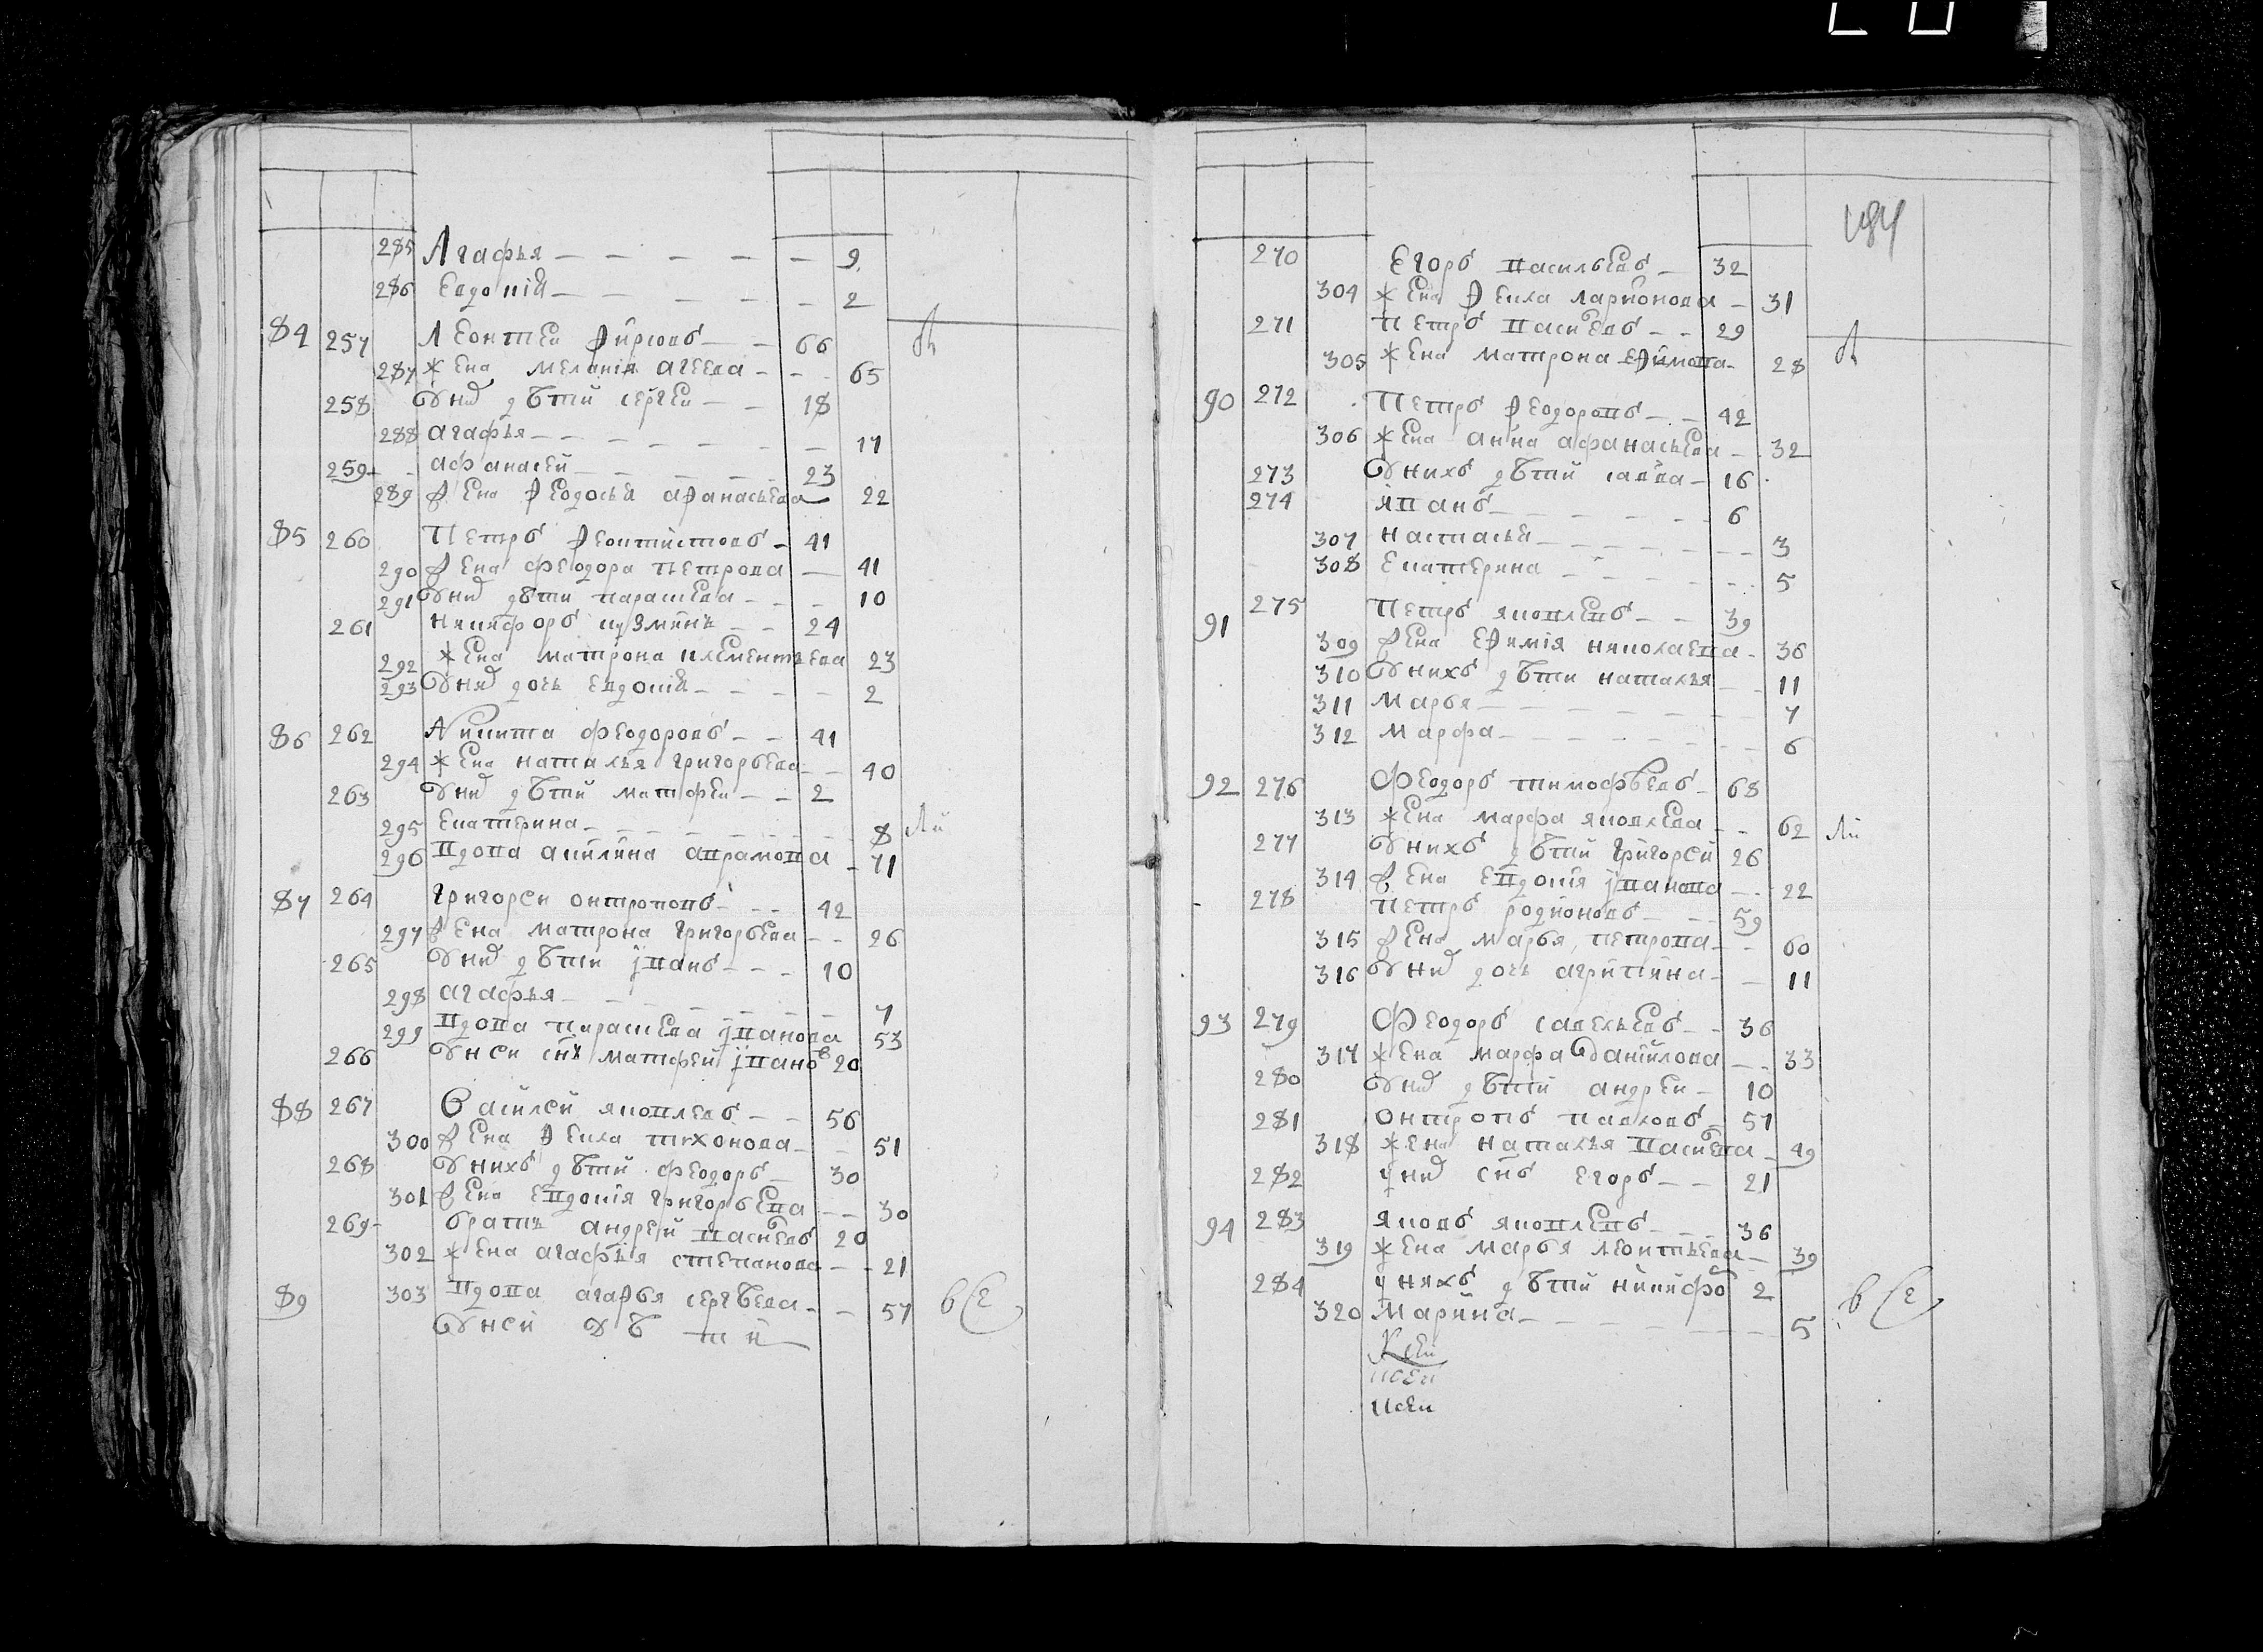 285 Агафья — 9
286 Евдокия — 2
84 257 Леонтеи Фирсовъ — 66
287 Жена Мелания Агеева — 65
258 У нихъ дѣти Сергеи — 18
288 Агафья — 17
259 Афанасеи — 23
289 Жена Феодосья Афанасьева 22
85 260 Петръ Феоктистовъ — 41
290 Жена Феодора Петрова — 41
291 У нихъ дѣти Парасиева — 10
261 Никифоръ Кузминъ — 24
292 Жена Матрона Клементьева 23
293 У нихъ дочь Евдокия — 2
86 262 Никита Феодоровъ — 41
294 Жена Наталья Григорьева — 40
263 У нихъ дѣти Матфеи — 2
295 Екатерина — 8
296 Вдова Акилина Аврамова — 71
87 264 Григореи Онтроповъ — 42
297 Жена Матрона Григорьева — 26
265 У нихъ дѣти Іванъ — 10
298 Агафья — 7
299 Вдова Парасиева Іванова 53
266 У неи снъ Матфеи Івановъ 20
88 267 Василеи Яковлевъ — 56
300 Жена Фекла Тихонова — 51
268 У нихъ дѣти Феодоръ — 30
301 Жена Евдокия Григорьева — 30
269 Братъ Андреи Васиевъ 20
302 Жена Агафья Степанова — 21
89 303 Вдова Агафья Сергѣева — 57
У неи дѣти
270 Егоръ Васильевъ — 32
304 Жена Фекла Ларионова — 31
271 Петръ Васиевъ — 29
305 Жена Матрона Ефимова — 28
90 272 Петръ Феодоровъ — 42
306 Жена Анна Афанасьева — 32
273 У нихъ дѣти Савва — 16
274 Иванъ — 6
307 Настасья — 3
308 Екатерина — 5
91 275 Петръ Яковлевъ — 39
309 Жена Ефимия Николаева — 36
310 У нихъ дѣти Наталья — 11
311 Марья — 7
312 Марфа — 6
92 276 Феодоръ Тимофѣевъ — 68
313 Жена Марфа Яковлева — 62
277 У нихъ дѣти Григореи 26
314 Жена Евдокия Іванова — 22
278 Петръ Родионовъ — 59
315 Жена Марья Петрова — 60
316 У нихъ дочь Агрипина — 11
93 279 Феодоръ Савельевъ — 36
317 Жена Марфа Данилова — 33
280 У нихъ дѣти Андреи — 10
281 Онтропъ Павловъ — 51
318 Жена Наталья Васиева — 49
282 У нихъ снъ Егоръ — 21
94 283 Яковъ Яковлевъ — 36
319 Жена Марья Леонтьева — 39
284 У нихъ дѣти Никифо 2
320 Марина — 5